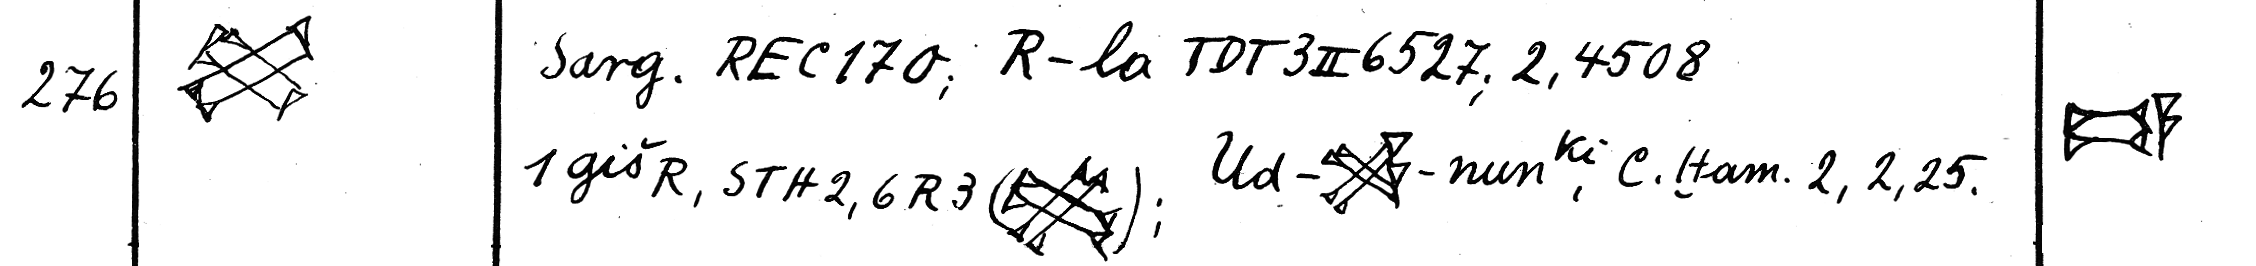 276 Sarg. REC 170; R-la TDT 3 II 6527; 2, 4508
1 giš R, STH 2, 6 R 3 ( ); Ud- -nun ki, C. Ḫam. 2, 2, 25.